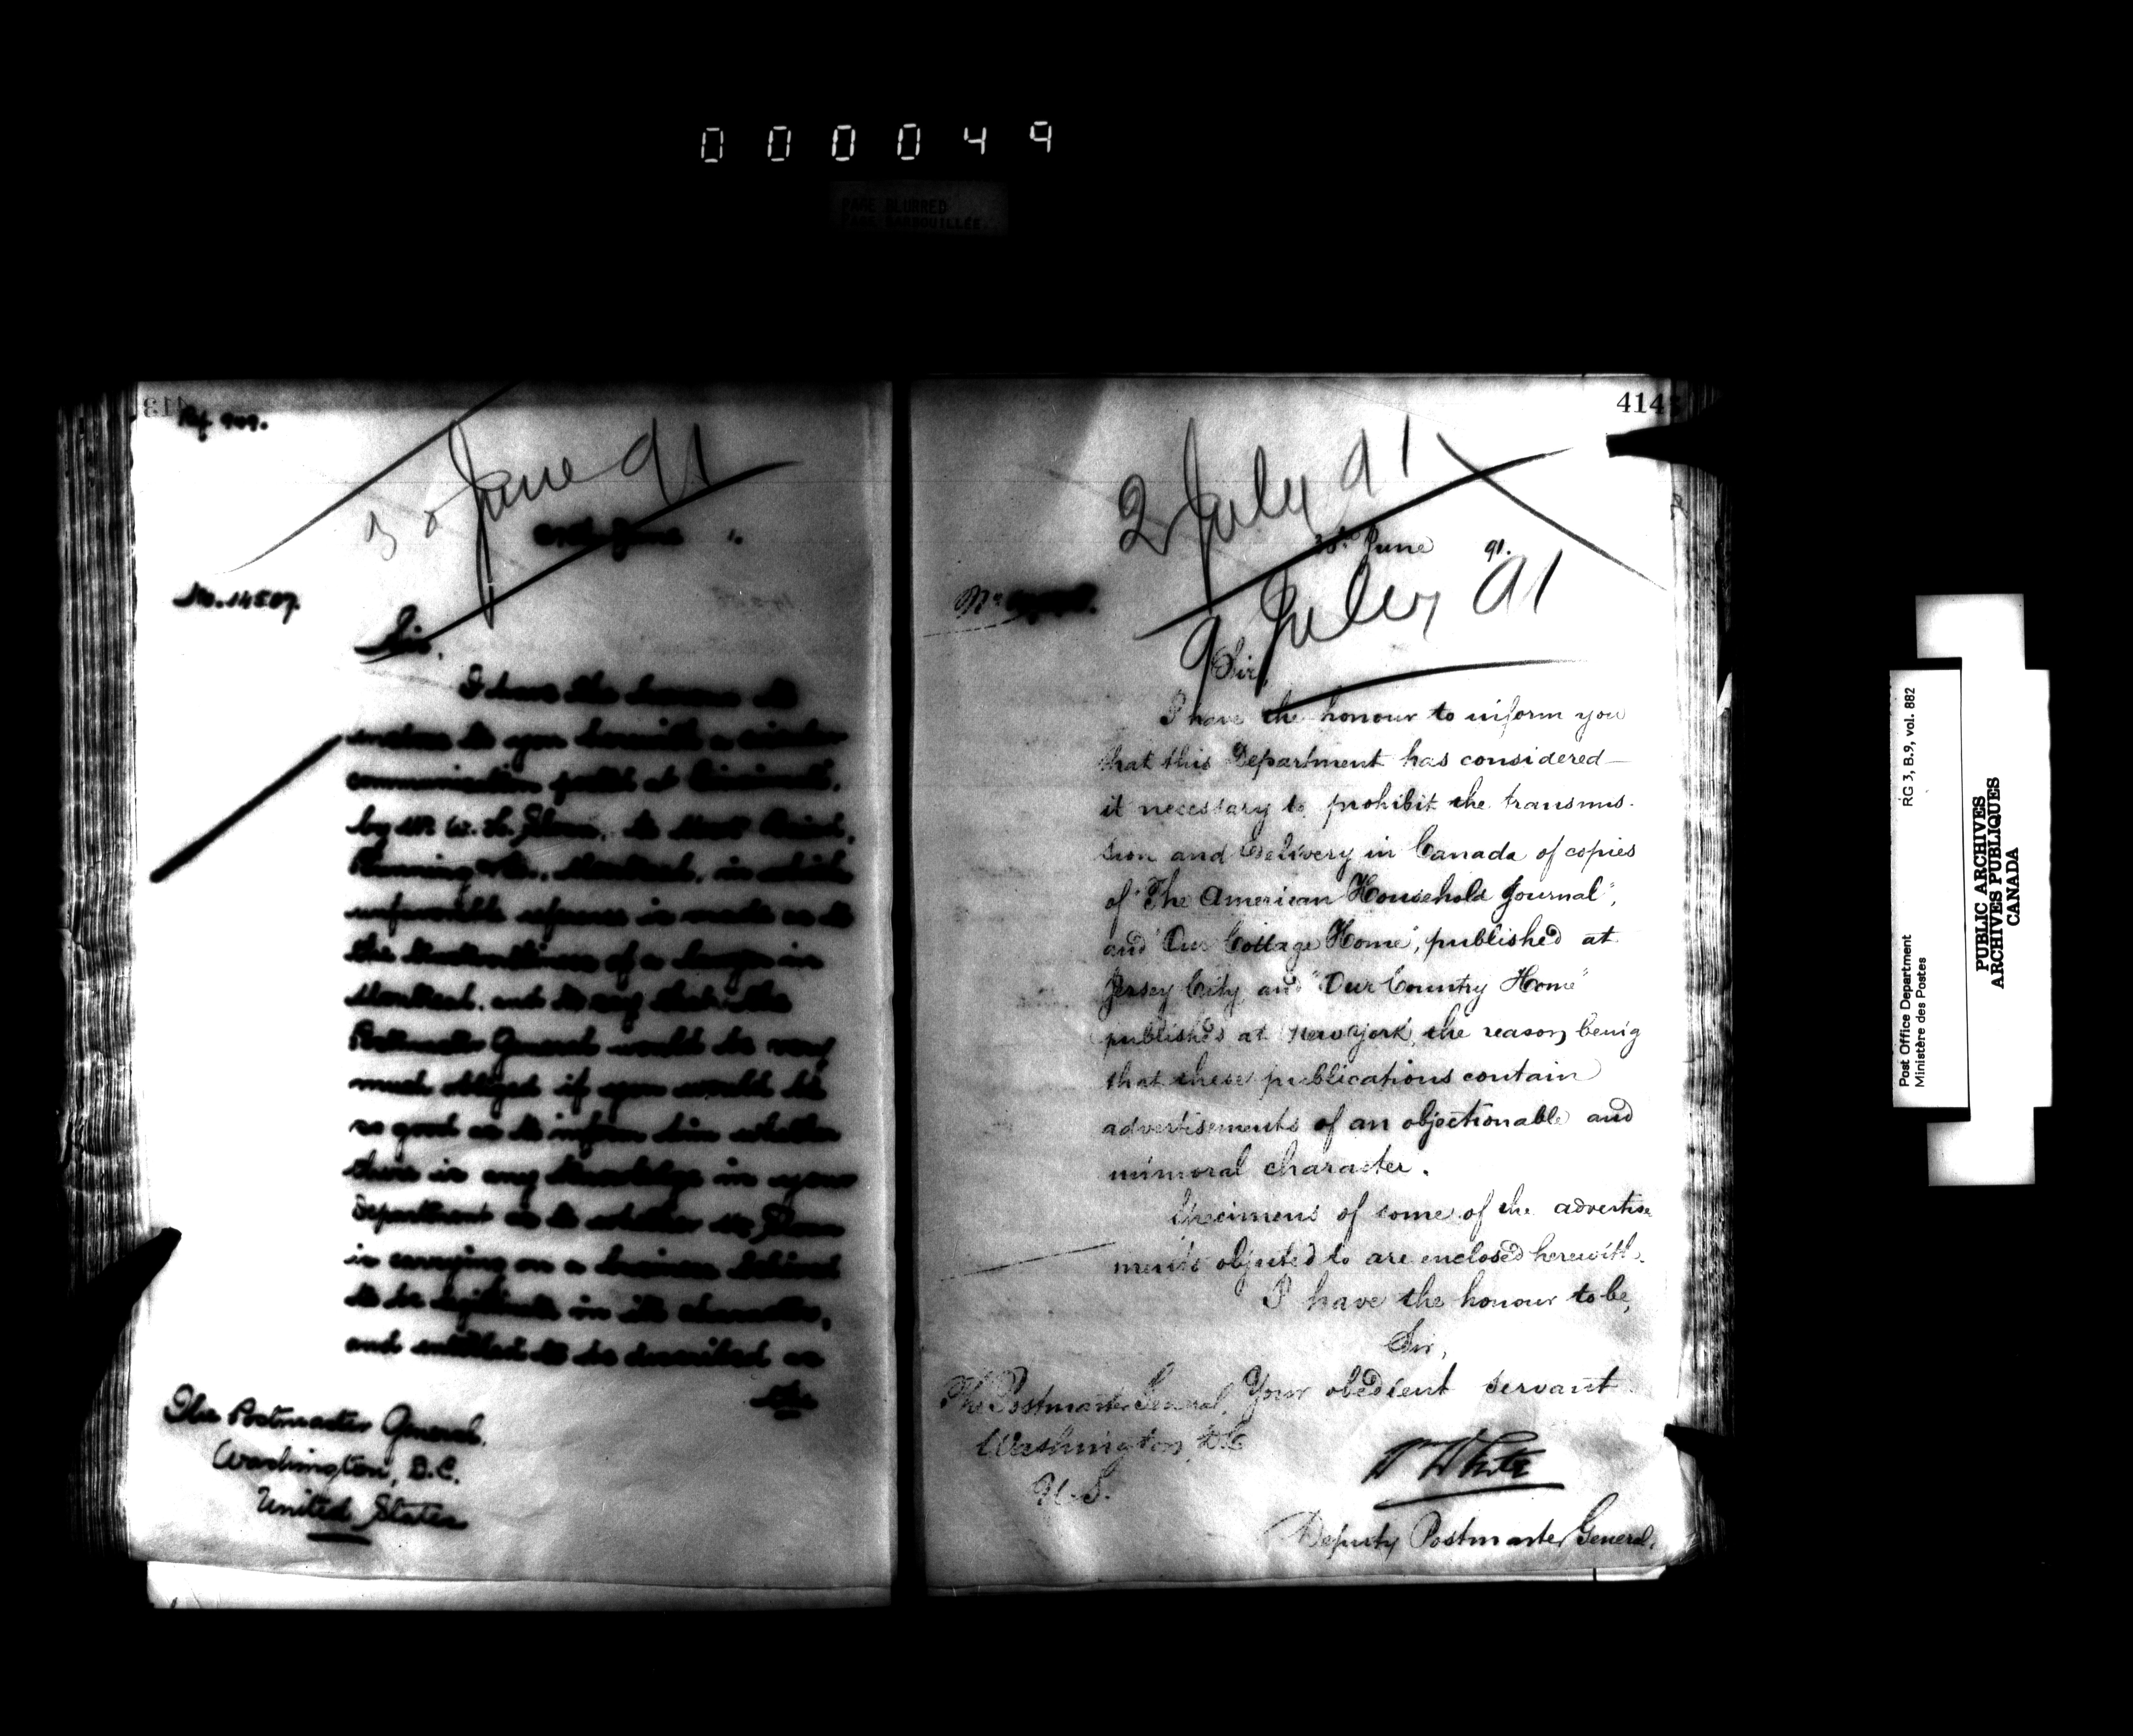 000049
PAGE BLURRED
PAGE BARBOUILLÉE.
413
June 91
No. 14507.
Sir,
I have the honour to
enclose to you herewith a circular
communication posted at Cincinnati,
by Mr W. H.
Montreal, in which
unfavorable reference is made as to
the of a lawyer in
Montreal, and to say that the
Postmaster General would be very
much obliged if you would be
so good as to inform him whether
there is any knowledge in your
Department as to whether Mr
is carrying on a business believed
to be legitimate in its character,
and entitled to be described as
The Postmaster General,
Washington, D.C.
United States
414
2 July 91
30th June 91.
9 July 91
No
Sir,
I have the honour to inform you
that this Department has considered
it necessary to prohibit the transmis-
sion and delivery in Canada of copies
of "The American Household Journal",
and "Our Cottage Home", published at
Jersey City, and "Our Country Home"
published at New York, the reason being
that these publications contain
advertisements of an objectionable and
immoral character.
Specimens of some of the advertise
ments objected to are enclosed herewith.
I have the honour to be,
Sir,
Your obedient servant
The Postmaster General,
Washington, D.C.
U.S.
W White
Deputy Postmaster General.
Post Office Department
Ministère des Postes
RG 3, B.9, vol. 882
PUBLIC ARCHIVES
ARCHIVES PUBLIQUES
CANADA